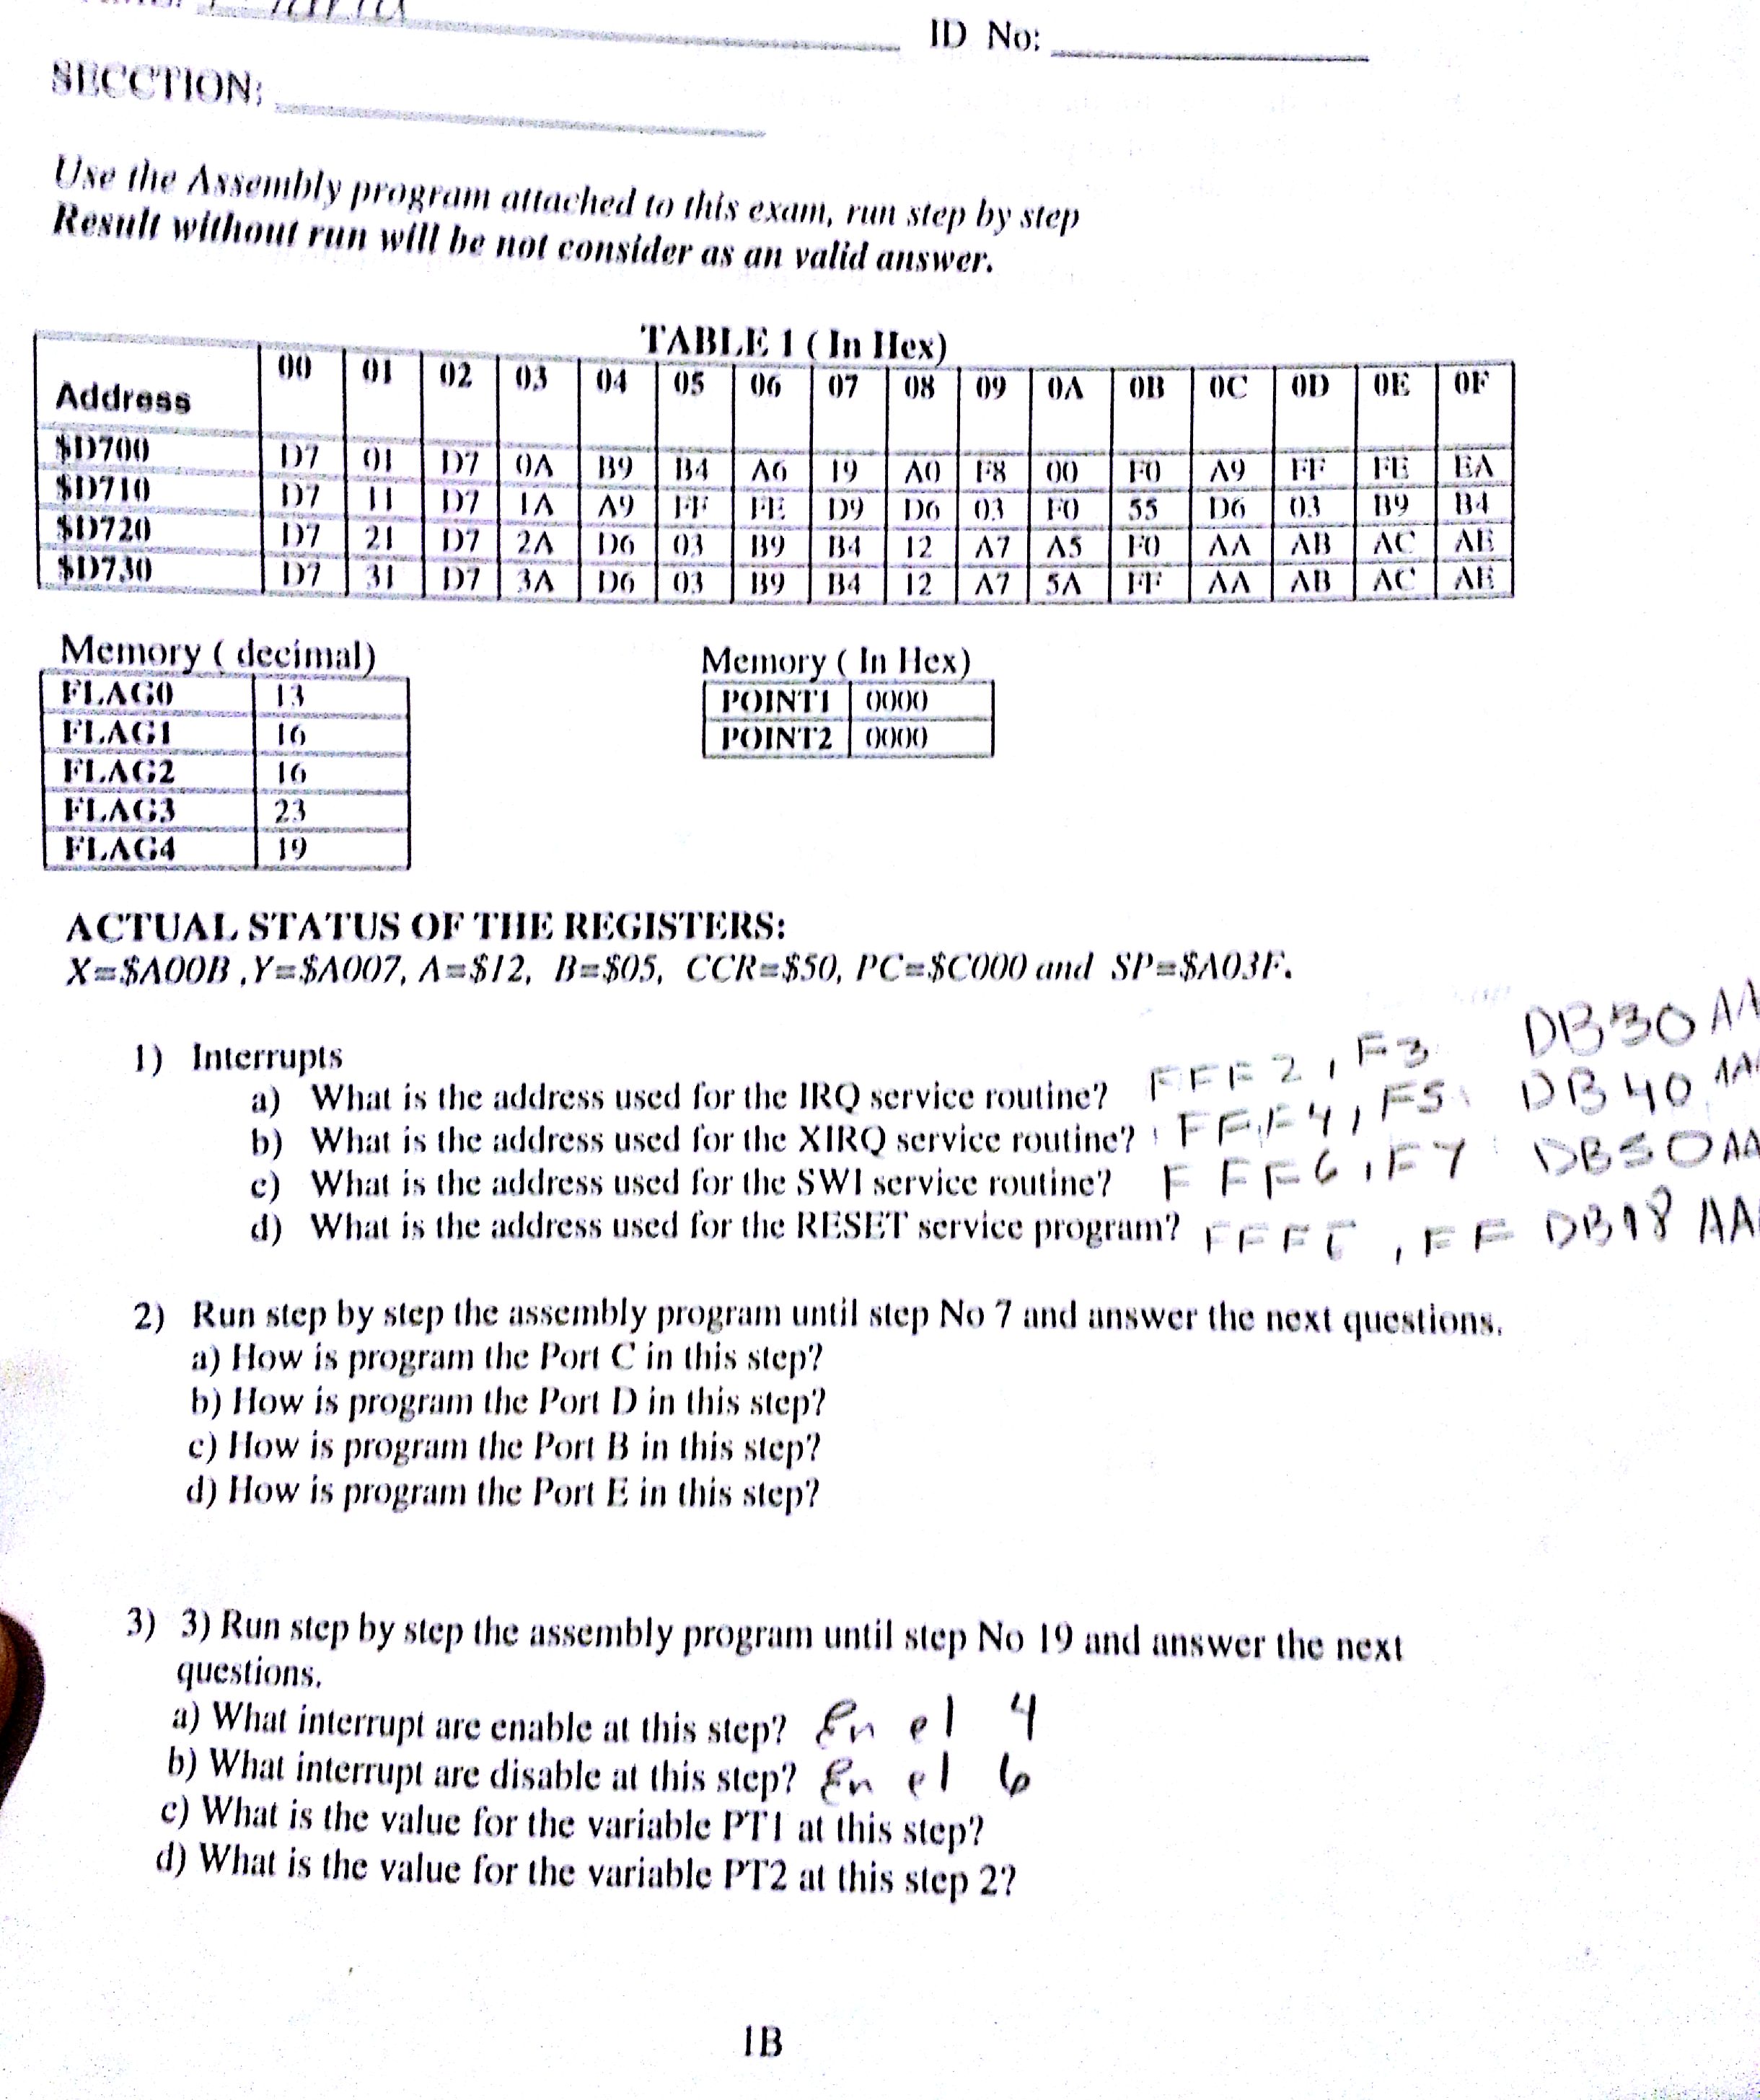 ID No:
SECCTION:
Use the Assembly program attached to this exam, run step by step
Result without run will be not consider as an valid answer.
TABLE 1 ( In Hex)
Address 00 01 02 03 04 05 06 07 08 09 0A 0B 0C 0D 0E 0F
$D700 D7 01 D7 0A B9 B4 A6 19 A0 F8 00 F0 A9 FF FE EA
$D710 D7 11 D7 1A A9 FF FE D9 D6 03 F0 55 D6 03 B9 B4
$D720 D7 21 D7 2A D6 03 B9 B4 12 A7 A5 F0 AA AB AC AE
$D730 D7 31 D7 3A D6 03 B9 B4 12 A7 5A FF AA AB AC AE
Memory ( decimal)
FLAG0 13
FLAG1 16
FLAG2 16
FLAG3 23
FLAG4 19
Memory ( In Hex)
POINT1 0000
POINT2 0000
ACTUAL STATUS OF THE REGISTERS:
X=$A00B ,Y=$A007, A=$12, B=$05, CCR=$50, PC=$C000 and SP=$A03F.
1) Interrupts
a) What is the address used for the IRQ service routine? FFF2, F3 DB30 AA
b) What is the address used for the XIRQ service routine? FFF4, F5 DB40 AA
c) What is the address used for the SWI service routine? FFF6, F7 DB50 AA
d) What is the address used for the RESET service program? , FF AA
2) Run step by step the assembly program until step No 7 and answer the next questions.
a) How is program the Port C in this step?
b) How is program the Port D in this step?
c) How is program the Port B in this step?
d) How is program the Port E in this step?
3) 3) Run step by step the assembly program until step No 19 and answer the next
questions.
a) What interrupt are enable at this step? En el 4
b) What interrupt are disable at this step? En el 6
c) What is the value for the variable PT1 at this step?
d) What is the value for the variable PT2 at this step 2?
1B